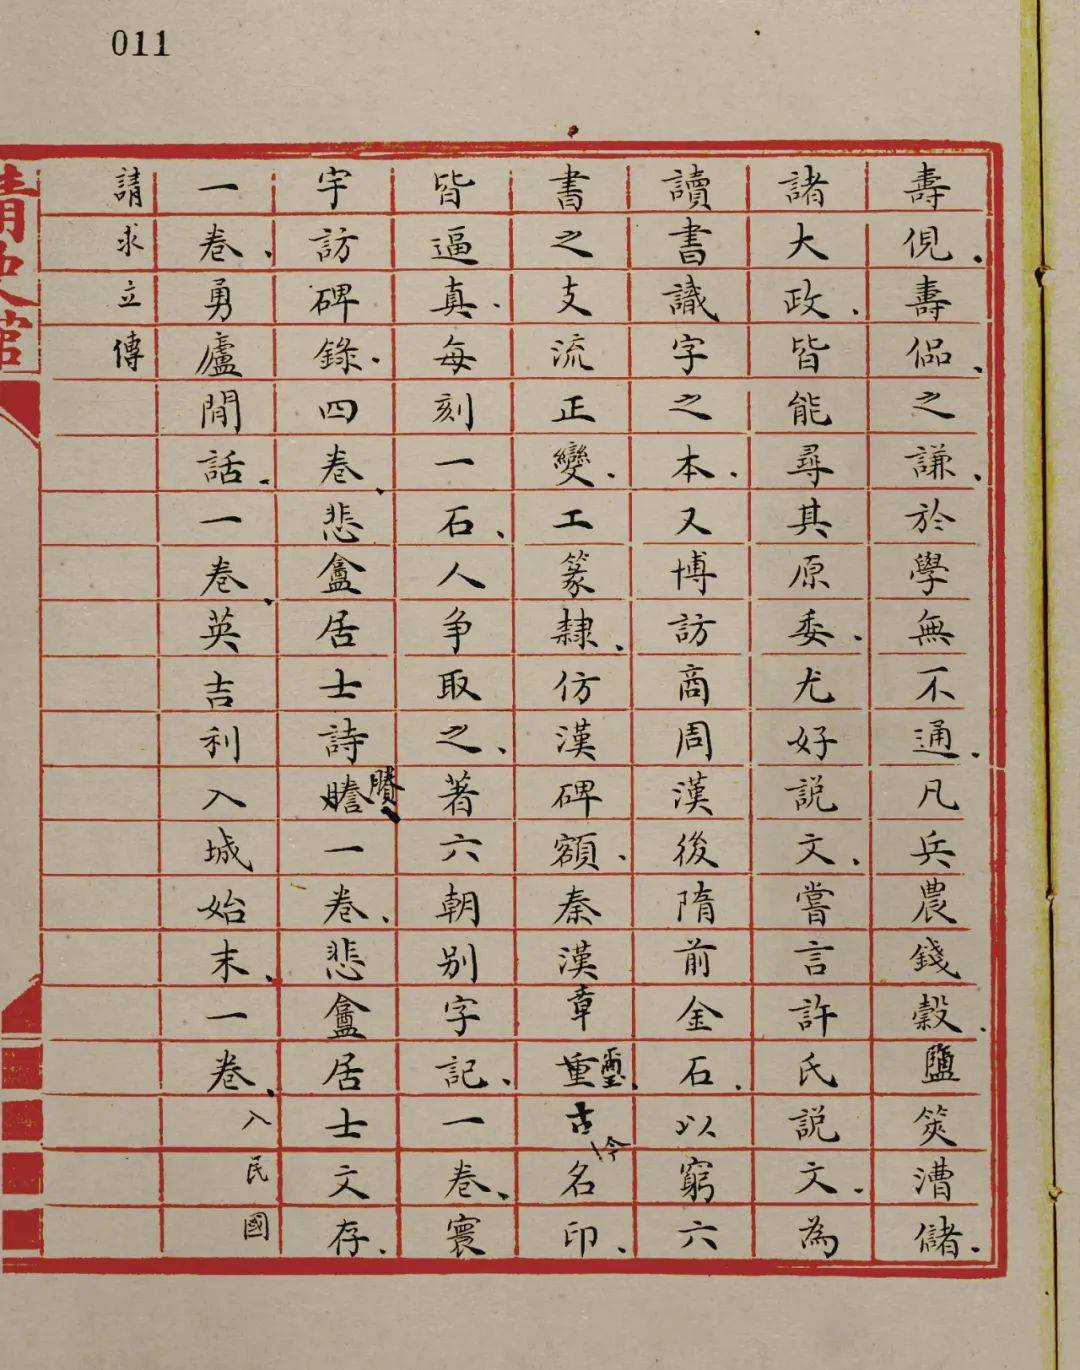 011
壽俔壽侣之謙於學無不通凡兵農錢穀鹽筴漕儲
諸大政皆能尋其原委尤好説文嘗言許氏説文為
讀書識字之本又博訪商周漢後隋前金石以窮六
書之支流正變工篆隸仿漢碑額秦漢章重璽古今名印
皆逼真每刻一石人争取之著六朝别字記一卷寰
宇訪碑錄四卷悲盦居士詩賸一卷悲盦居士文存
一卷勇廬閒話一卷英吉利入城始末一卷入民國
請求立傳
清史館